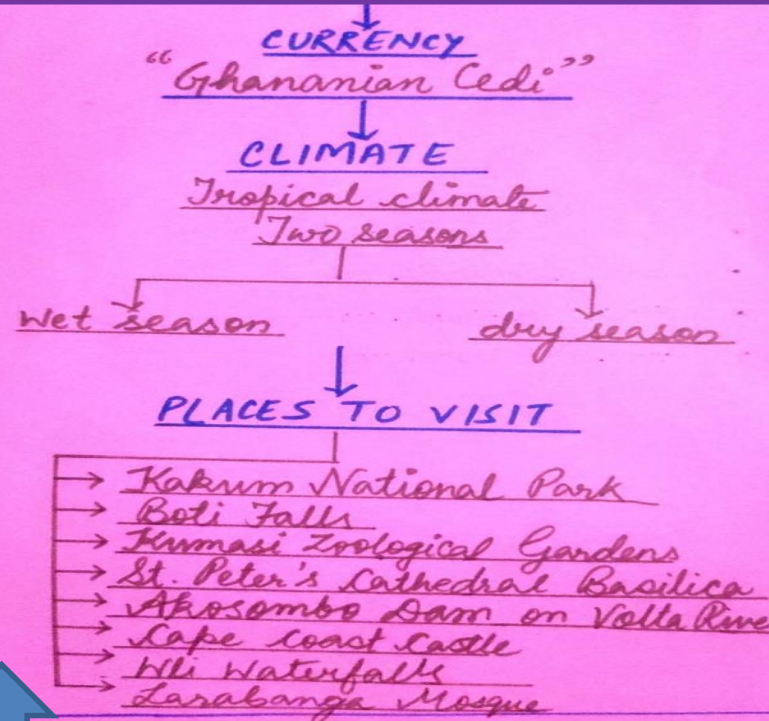 CURRENCY
"Ghananian Cedi"
CLIMATE
Tropical climate
Two seasons
wet season dry season
PLACES TO VISIT
Kakum National Park
Boti Falls
Kumasi Zoological Gardens
St. Peter's Cathedral Basilica
Akosombo Dam on Volta Rive
Cape Coast Castle
Wli Waterfalls
Larabanga Mosque